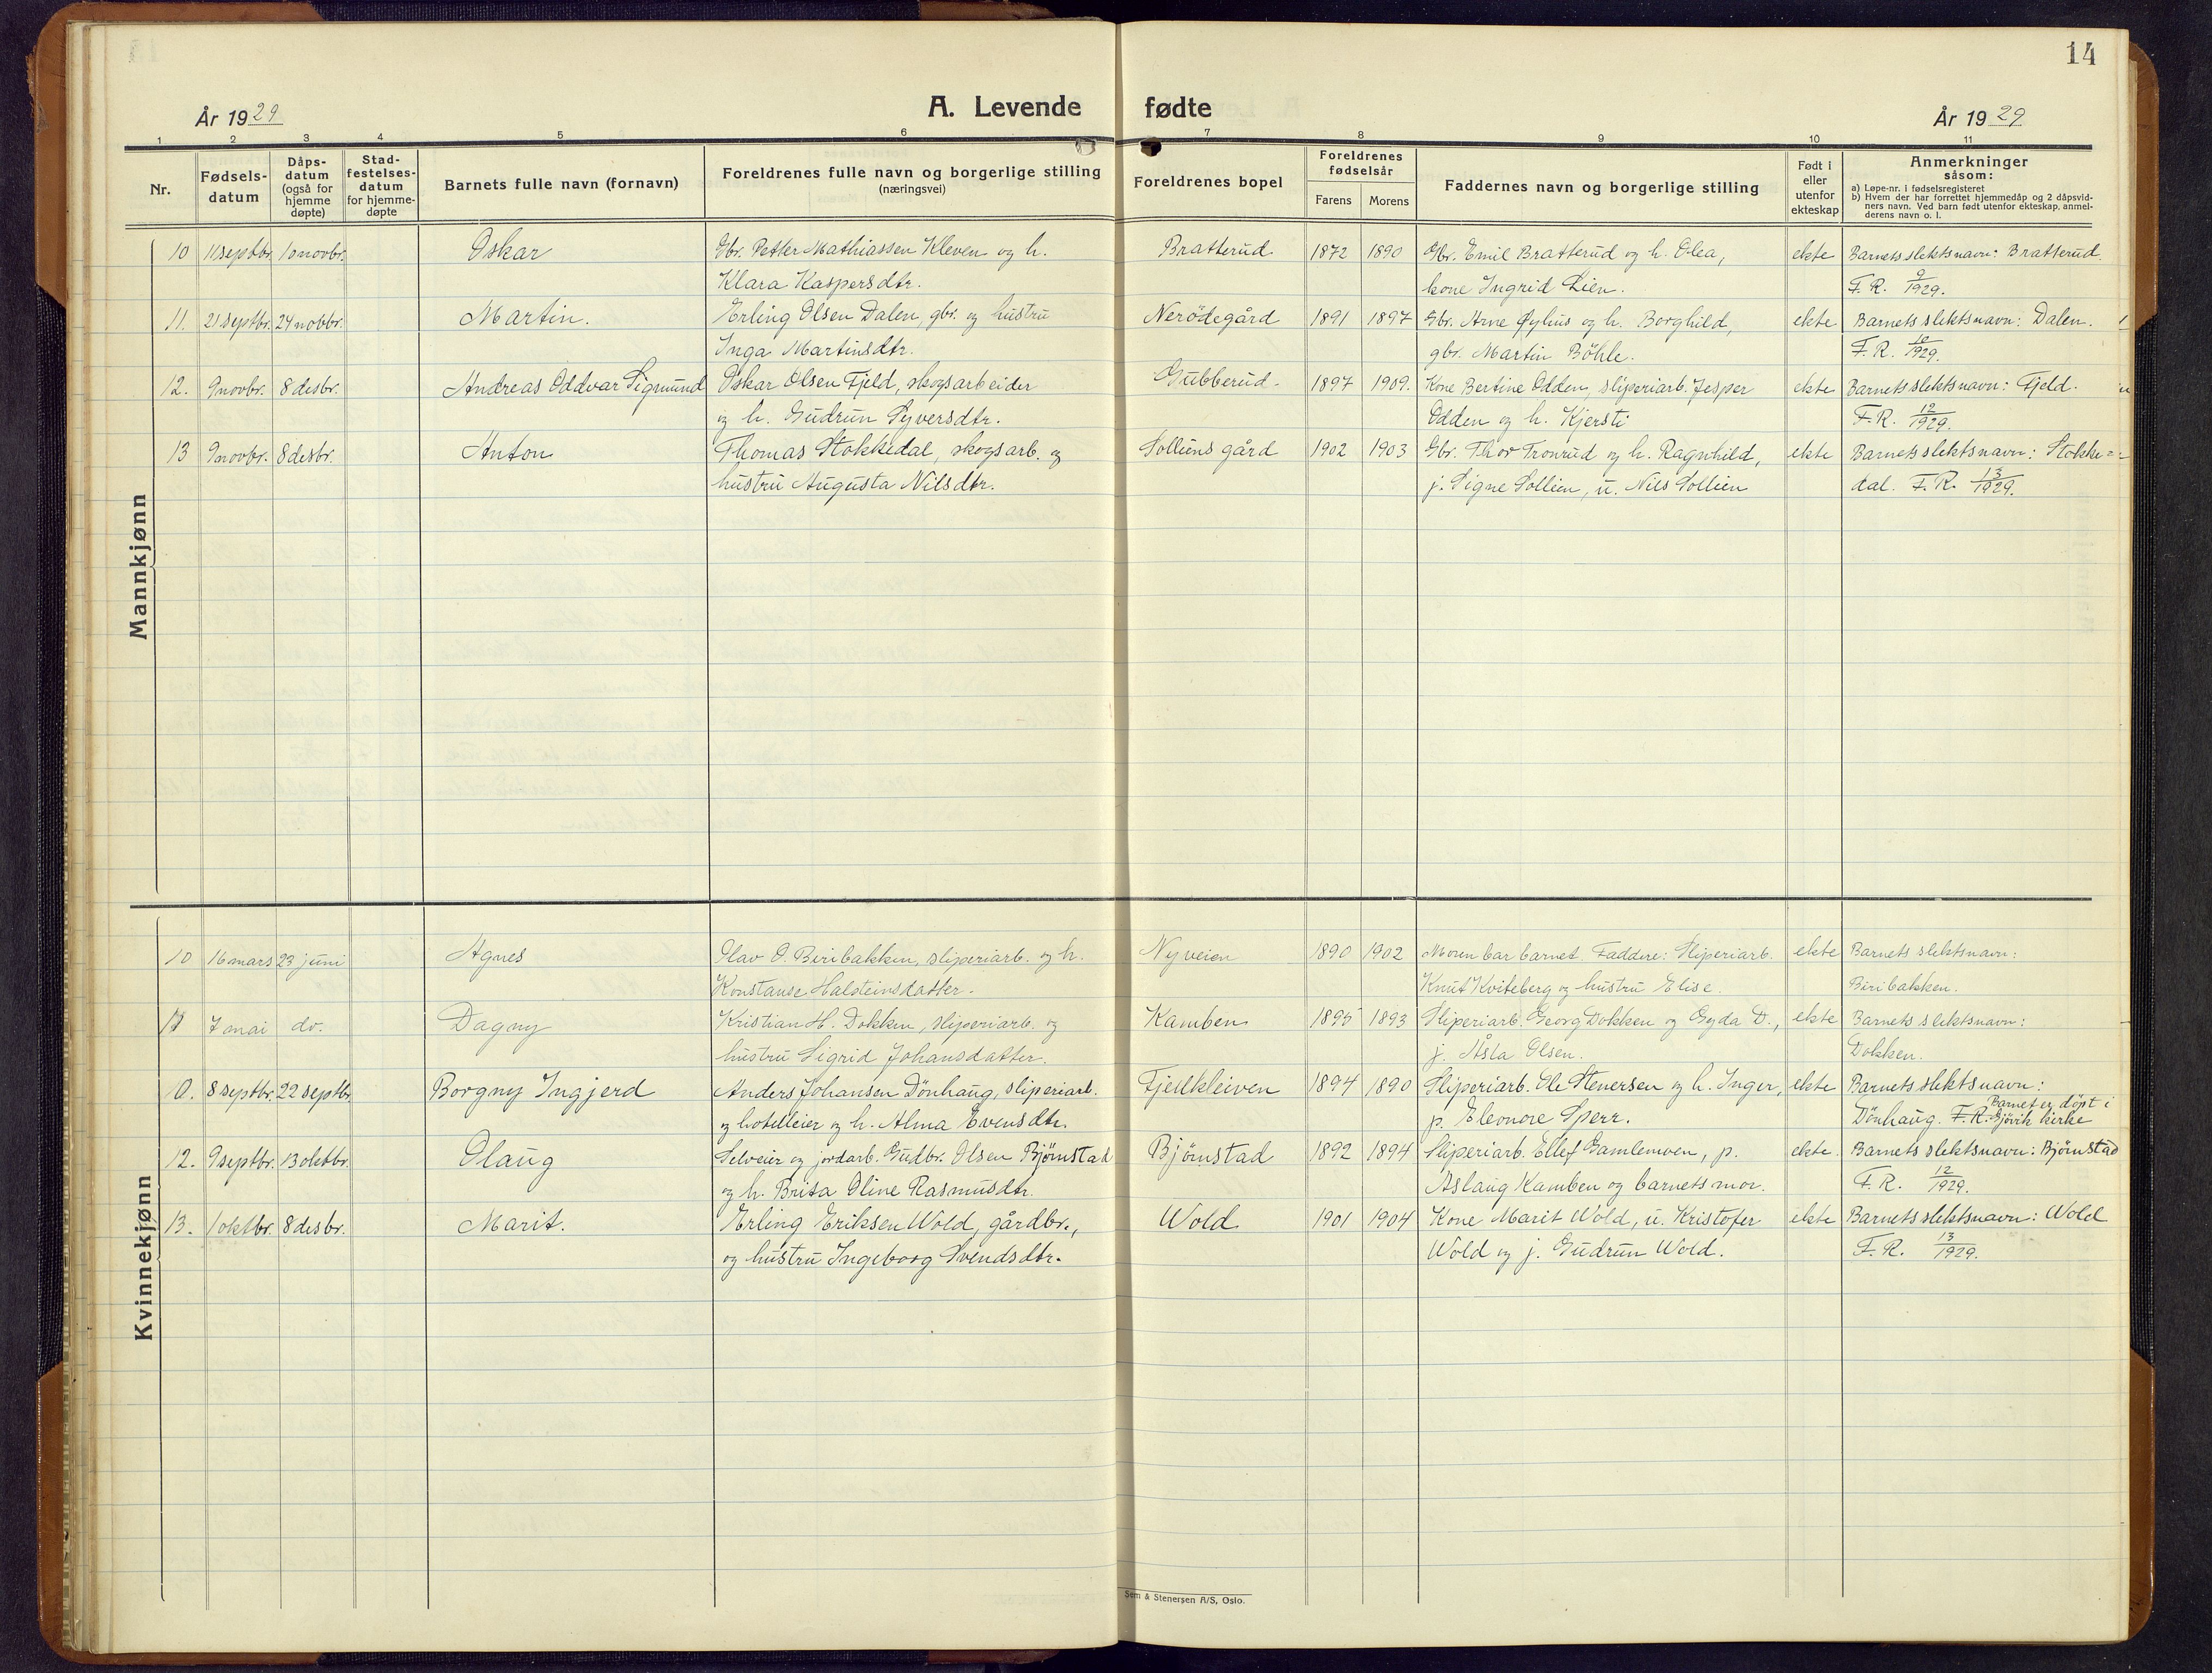 14
År 1929
A. Levende fødte
År 1929
1 2 3 4 5 6 7 8 9 10 11
Nr.
Fødsels-
datum
Dåps-
datum
(også for
hjemme
døpte)
Stad-
festelses-
datum
for hjemme-
døpte
Barnets fulle navn (fornavn)
Foreldrenes fulle navn og borgerlige stilling
(næringsvei)
Foreldrenes bopel
Foreldrenes
fødselsår
Farens Morens
Faddernes navn og borgerlige stilling
Født i
eller
utenfor
ekteskap
Anmerkninger
såsom:
a) Løpe-nr. i fødselsregisteret
b) Hvem der har forrettet hjemmedåp og 2 dåpsvid-
ners navn. Ved barn født utenfor ekteskap, anmel-
derens navn o. l.
Mannkjønn
10 11septbr. 10novbr. Oskar Gbr. Petter Mathiassen Kleven og h. Bratterud 1872 1890 Gbr. Emil Bratterud og h. Olea, ekte Barnets slektsnavn: Bratterud.
Klara Kaspersdtr. kone Ingrid Lien. F. R. 9/1929.
11. 21septbr. 24novbr. Martin. Erling Olsen Dalen, gbr. og hustru Nerödegård 1891 1897 Gbr. Arne Øyhus og h. Borghild, ekte Barnets slektsnavn: Dalen.
Inga Martinsdtr. gbr. Martin Böhle. F. R. 10/1929.
12. 9novbr. 8desbr. Andreas Oddvar Sigmund Oskar Olsen Fjeld, skogsarbeider Gubberud. 1897 1909. Kone Bertine Odden, sliperiarb. Jesper ekte Barnets slektsnavn: Fjeld.
og h. Gudrun Syversdtr. Odden og h. Kjersti F. R. 12/1929.
13 9novbr. 8desbr. Anton Thomas Stokkedal, skogsarb. og Solliens gård 1902 1903 Gbr. Thor Tronrud og h. Ragnhild, ekte Barnets slektsnavn: Stokke=
hustru Augusta Nilsdtr. j. Signe Sollien, u. Nils Sollien dal. F. R. 13/1929.
Kvinnekjønn
10 16mars 23juni Agnes Olav O. Biribakken, sliperiarb. og h. Nyveien 1890 1902 Moren bar barnet. Faddere: Sliperiarb. ekte Barnets slektsnavn:
Konstanse Halsteinsdatter. Knut Kviteberg og hustru Elise. Biribakken.
7mai do. Dagny Kristian H. Dokken, sliperiarb. og Kamben 1893 Sliperiarb. Georg Dokken og Gyda D., ekte Barnets slektsnavn:
hustru Sigrid Johansdatter. j. Åsta Olsen. Dokken.
8septbr. 22septbr Borgny Ingjerd Anders Johansen Dönhaug, sliperiarb. Fjellkleiven 1894 1890 Sliperiarb. Ole Stenersen og h. Inger, ekte Barnets slektsnavn:
og hotelleier og h. Alma Evensdtr. p. Eleonore Sperr. Dönhaug. F. R. Barnet er döpt i Gjövik kirke
12. 9septbr. 13oktbr. Olaug Selveier og jordarb. Gudbr. Olsen Björnstad Björnstad 1892 1894 Sliperiarb. Ellef Gamlemoen, p. ekte. Barnets slektsnavn: Björnstad
og h. Brita Oline Rasmusdtr. Aslaug Kamben og barnets mor. F. R. 12/1929.
13. 1oktbr. 8desbr. Marit. Erling Eriksen Wold, gårdbr., Wold 1901 1904 Kone Marit Wold, u. Kristofer ekte Barnets slektsnavn: Wold
og hustru Ingeborg Svendsdtr. Wold og j. Gudrun Wold. F. R. 13/1929.
Sem & Stenersen A/S, Oslo.